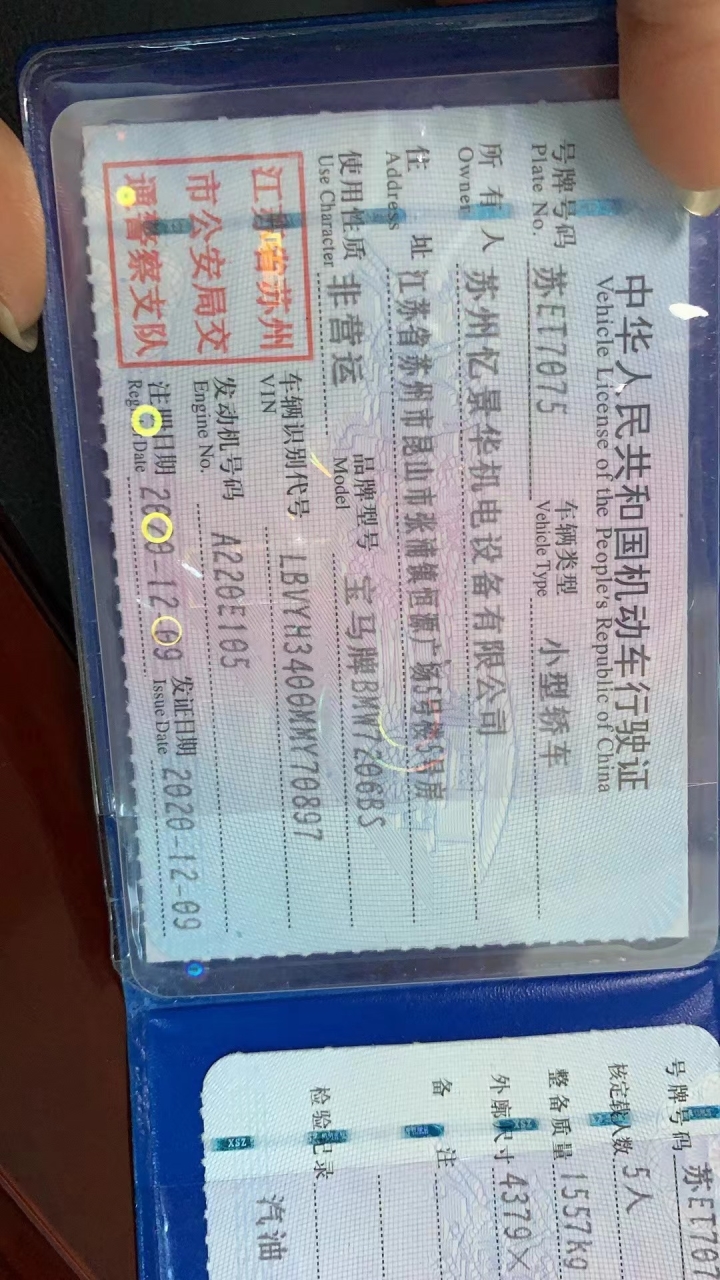 中华人民共和国机动车行驶证
Vehicle License of the People's Republic of China
号牌号码 苏ET7075 车辆类型 小型轿车
Plate No. Vehicle Type
所有人 苏州忆景华机电设备有限公司
Owner
住址 江苏省苏州市昆山市张浦镇恒源广场5号楼
Address
使用性质 非营运 品牌型号 宝马牌BMW7200BS
Use Character Model
江苏省苏州
市公安局交
通警察支队
车辆识别代号 LBVYH3400MMY70897
VIN
发动机号码 A220E105
Engine No.
注册日期 2020-12-09 发证日期 2020-12-09
Register Date Issue Date
号牌号码 苏ET707
核定载人数 5人
整备质量 1557kg
外廓尺寸 4379×
备注
检验记录
汽油
ZSX